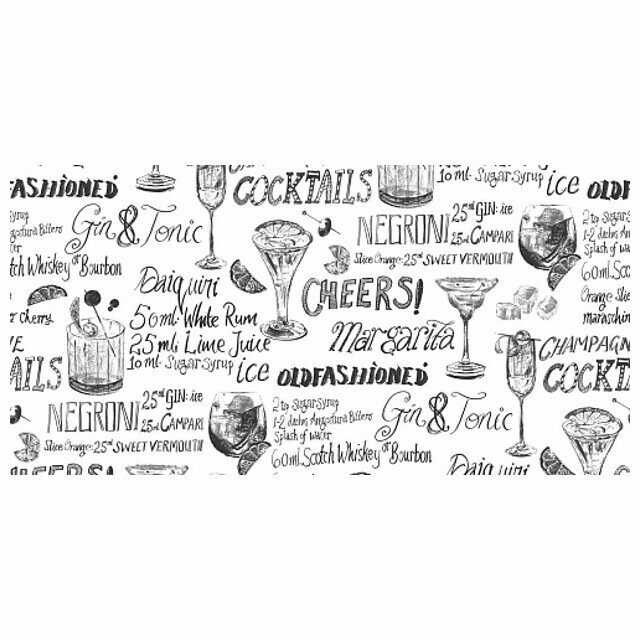 COCKTAILS
10 ml. Sugar Syrup
ice
FASHIONED
OLDF
Syrup
ngostura Bitters
ter
tch Whiskey or Bourbon
Gin & Tonic
NEGRONI
25ml GIN: ice
25ml CAMPARI
Slice Orange: 25ml SWEET VERMOUTH
2 tsp Sugar Syrup
1-2 dashes
Splash of water
60ml Scotch
Orange Slice
maraschin
Daiquiri
50ml. White Rum
25ml. Lime Juice
10 ml. Sugar Syrup
ice
CHEERS!
Margarita
r cherry
AILS
OLDFASHIONED
CHAMPAGN
COCKTA
NEGRONI
25ml GIN: ice
25ml CAMPARI
Slice Orange: 25ml SWEET VERMOUTH
2 tsp Sugar Syrup
1-2 dashes Angostura Bitters
Splash of water
60ml. Scotch Whiskey or Bourbon
Gin & Tonic
CHEERS!
Daiquiri